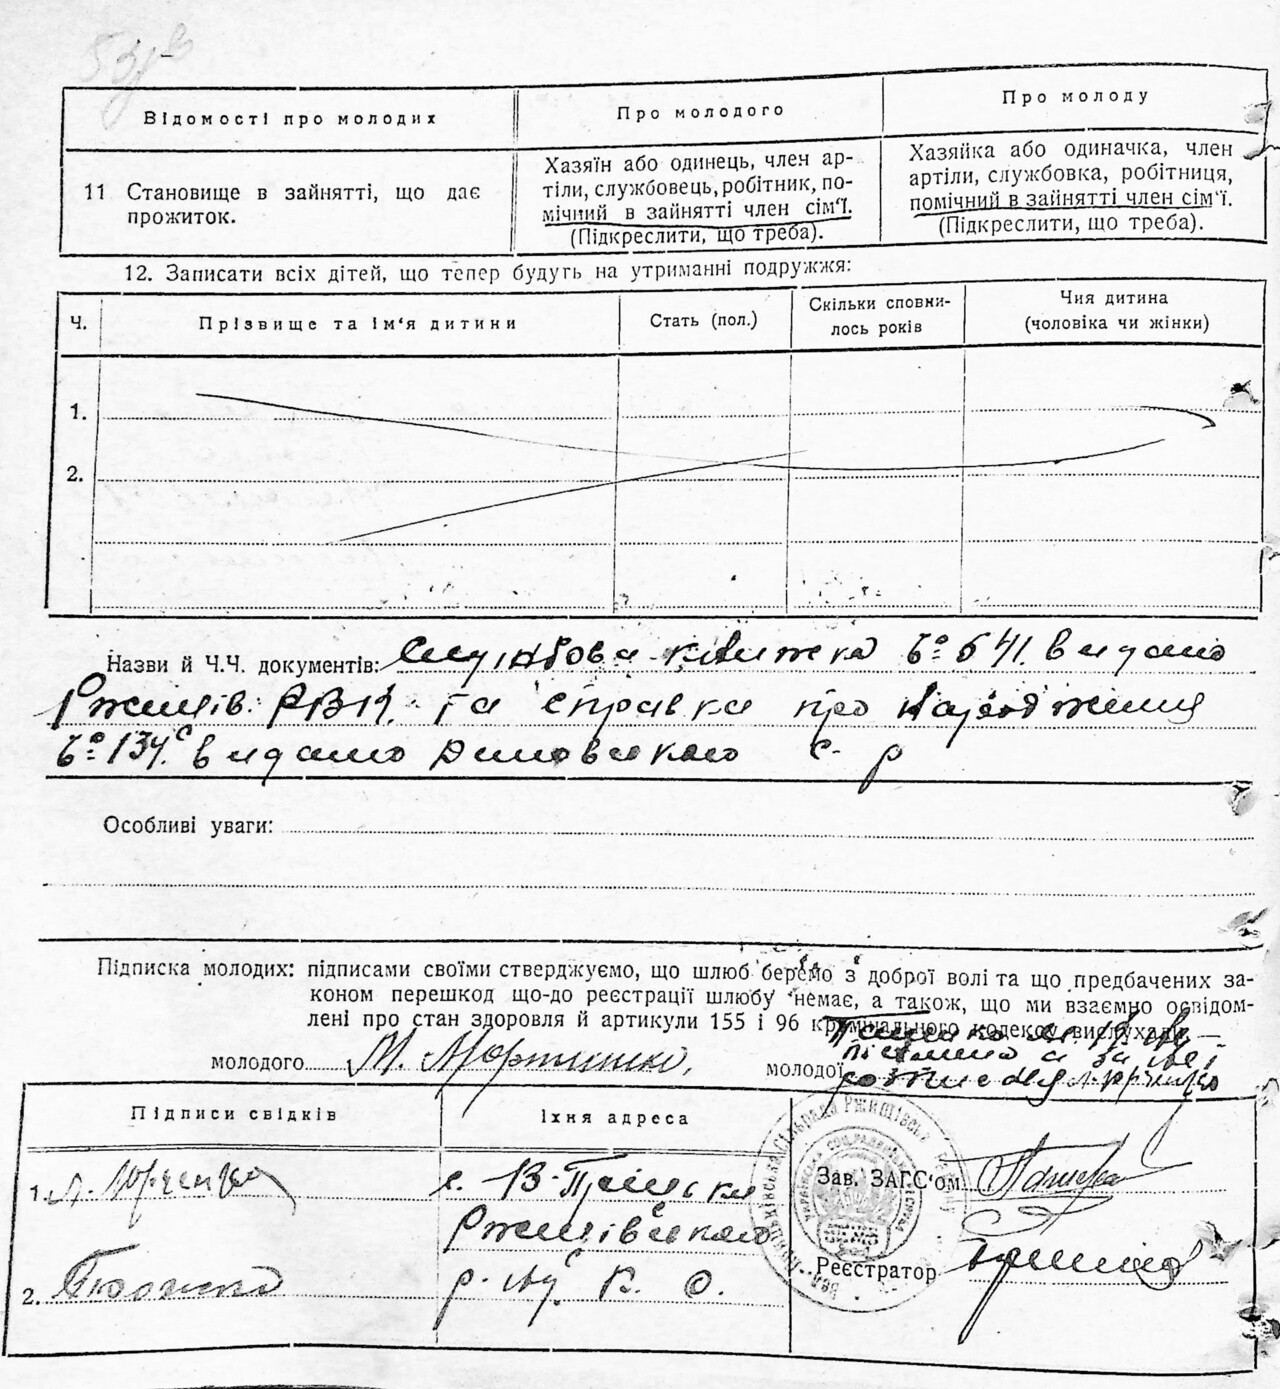 Відомості про молодих
Про молодого
Про молоду
11 Становище в зайнятті, що дає прожиток.
Хазяїн або одинець, член ар-
тіли, службовець, робітник, по-
мічний в зайнятті член сім'ї.
(Підкреслити, що треба).
Хазяйка або одиначка, член
артіли, службовка, робітниця,
помічний в зайнятті член сім'ї.
(Підкреслити, що треба).
12. Записати всіх дітей, що тепер будуть на утриманні подружжя:
Ч.
Прізвище та ім'я дитини
Стать (пол.)
Скільки сповни-
лось років
Чия дитина
(чоловіка чи жінки)
1.
2.
Назви й Ч.Ч. документів: Службова книжка 641. видано
Ржищів. РВК. та справка про народження
134 видано с. р
Особливі уваги:
Підписка молодих: підписами своїми стверджуємо, що шлюб беремо з доброї волі та що предбачених за-
коном перешкод що-до реєстрації шлюбу немає, а також, що ми взаємно освідом-
лені про стан здоровля й артикули 155 і 96 кримінального кодексу вислухали
молодого М.
молодої
за неї
Підписи свідків
Їхня адреса
1.
с. В-
Ржищівського
2.
р. К. О.
Зав. ЗАГС'ом
Реєстратор